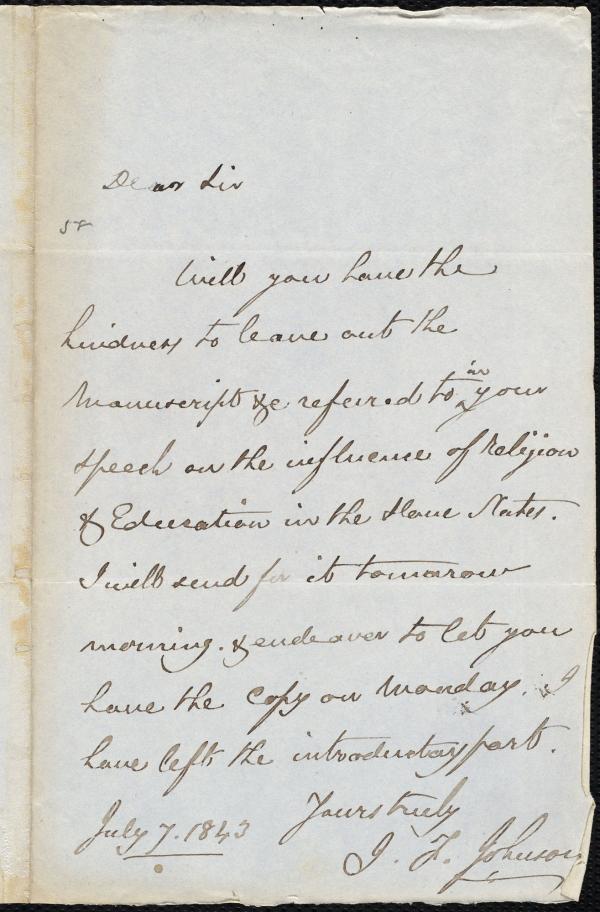 Dear Sir
58
Will you have the
kindness to leave out the
Manuscript &c referred to ^in your
speech on the influence of Religion
& Education in the Slave States.
I will send for it tomorow
morning. & endeaver to let you
have the copy on Monday. I
have left the introductory part.
Yours truly
July 7. 1843
J. F. Johnson